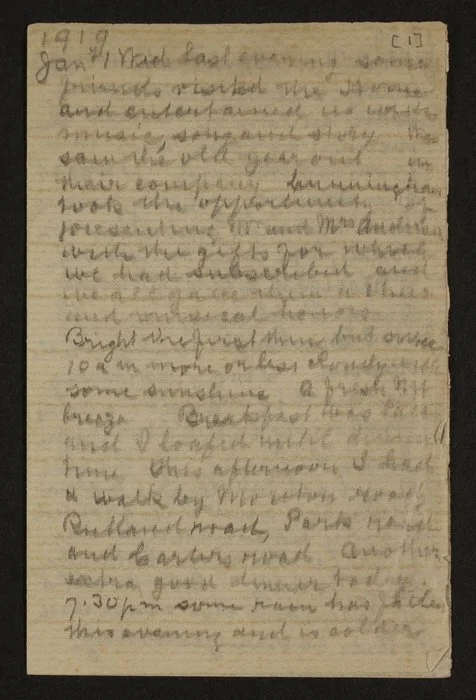 1919
[1]
Jany 1 Wed Last evening some
friends visited the Home
and entertained us with
music, song and story We
saw the old year out in
their company Cunningham
took the opportunity of
presenting Mr and Mrs Andrews
with the gifts for which
we had subscribed and
we all gave them a cheer
and musical honors
Bright the first thing but since
10 am more or less cloudy with
some sunshine A fresh NW
breeze Breakfast was late
and I loafed until dinner
time This afternoon I had
a walk by Moreton road,
Rutland road, Park road
and Carters road Another
extra good dinner today.
7.30 pm some rain has fallen
this evening and is colder